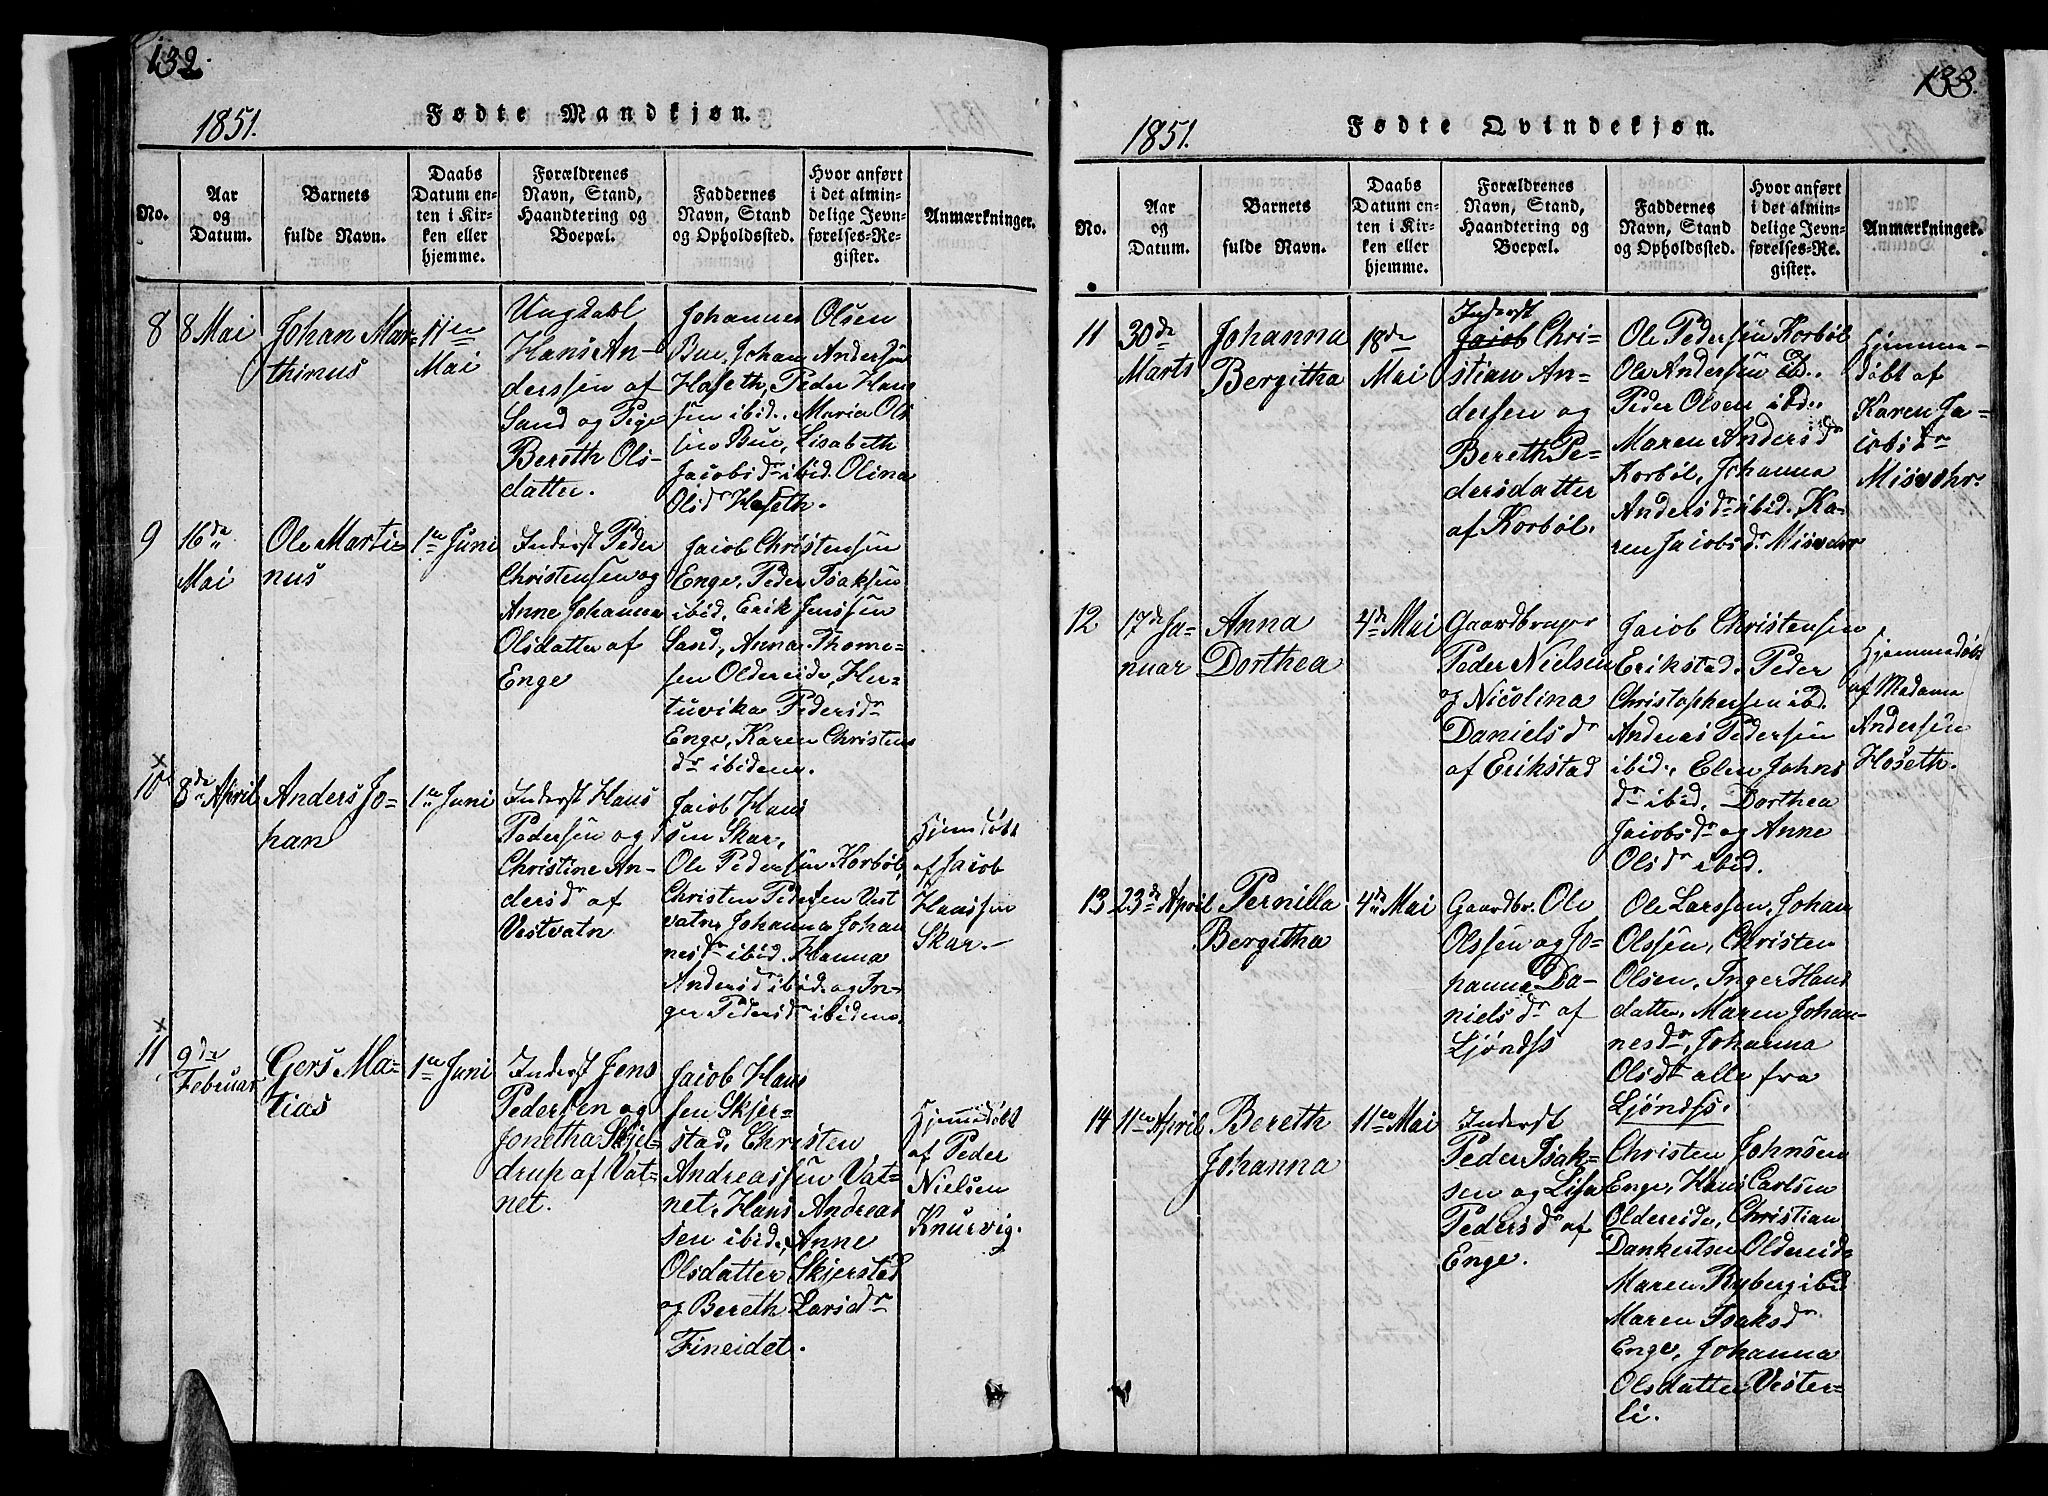 132.
1851. Fødte Mandkjøn.
No.
Aar
og
Datum.
Barnets
fulde Navn.
Daabs
Datum en-
ten i Kir-
ken eller
hjemme.
Forældrenes
Navn, Stand,
Haandtering og
Boepæl.
Faddernes
Navn, Stand
og Opholdssted.
Hvor anført
i det almin-
delige Jevn-
førelses-Re-
gister.
Anmærkninger.
8
8 Mai
Johan Mar-
thinus
11te
Mai
Ungdahl
Hans An-
derssen af
Sand og Pige
Bereth Ols-
datter.
Johannes Olsen
Bue, Johan Andersen
Hoseth, Peder Hans
sen ibid., Maria Ols
Bue, Lisabeth
Jacobsdr ibid. Olina
Olsdr Hoseth.
9
16de
Mai
Ole Marti-
nus
1te Juni
Inderst Peder
Christensen og
Anne Johanna
Olsdatter af
Enge
Jacob Christensen
Enge, Peder Isaksen
ibid, Erik Jenssen
Sand, Anna Thome-
sen Oldereide, Her-
tuvika Pedersdr
Enge, Karen Christens
dr ibidem.
x
10
8de April
Anders Jo-
han
1te Juni
Inderst Hans
Pedersen og
Christine An-
dersdr af
Vestvatn
Jacob Hans
sen Skar,
Ole Pedersen Korbøl,
Christen Pedersen Vest
vatn, Johanna Johan
nesdr ibid. Hanna
Andersdr ibid. og In-
ger Pedersdr ibidem.
Hjemdøbt
af Jacob
Hanssen
Skar.
x
11
9de
Februar
Gers Ma-
tias
1te Juni
Inderst Jens
Pedersen og
Jonetha Skjel-
drup af Vat-
net.
Jacob Hans
sen Skjer-
stad, Christen
Andreassen Vat-
net, Hans Andreas
sen ibid., Anne
Olsdatter Skjerstad
og Bereth Larsdr
Fineidet.
Hjemmedøbt
af Peder
Nielsen
Knurvig.
133.
1851. Fødte Qvindekjøn.
No.
Aar
og
Datum.
Barnets
fulde Navn.
Daabs
Datum en-
ten i Kir-
ken eller
hjemme.
Forældrenes
Navn, Stand,
Haandtering og
Boepæl.
Faddernes
Navn, Stand
og Opholdssted.
Hvor anført
i det almin-
delige Jevn-
førelses-Re-
gister.
Anmærkninger.
11
30de
Marts
Johanna
Bergitha
18de
Mai
Inderst
Jacob Chri-
stian An-
dersen og
Bereth Pe-
dersdatter
af Korbøl.
Ole Pedersen Korbøl
Ole Andersen ibd.
Peder Olsen ibd.
Maren Andersdr
Korbøl, Johanna
Andersdr ibid. Ka-
ren Jacobsdr Misvær
Hjemme-
døbt af
Karen Ja-
cobsdr
Misvær.
12
17de Ja-
nuar
Anna
Dorthea
4de Mai
Gaardbruger
Peder Nielsen
og Nicolina
Danielsdr
af Erikstad
Jacob Christensen
Erikstad. Peder
Christophersen ibd.
Andreas Pedersen
ibid., Elen Johns
dr ibid, Dorthea
Jacobsdr og Anne
Olsdr ibid.
Hjemmedøbt
af Madame
Andersen
Hoseth.
13
23de April
Pernilla
Bergitha
4de Mai
Gaardbr. Ole
Olssen og Jo-
hanna Da-
nielsdr af
Ljøndss
Ole Larssen, Johan
Olssen, Christen
Olsen, Inger Hans
datter, Maren Johan-
nesdr, Johanna
Olsdr alle fra
Ljøndss.
14
11te April
Bereth
Johanna
11te Mai
Inderst
Peder Isak-
sen og Lisa
Pedersdr af
Enge.
Christen Johnsen
Enge, Hans Carlsen
Oldereide, Christian
Dankertsen Oldereide
Maren Ryberg ibid
Maren Isaksdr
Enge, Johanna
Olsdatter Vester-
li.